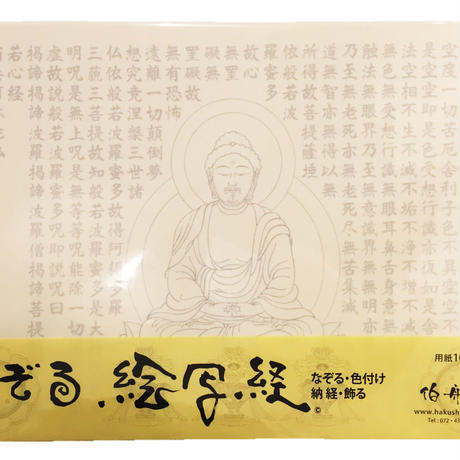 空度一切苦厄舎利子色不異空空
空空即是色受想行識亦復如是
法空相不生不滅不垢不浄不増不減
無色無受想行識無眼耳鼻舌身意
触法無眼界乃至無意識界無無明亦
乃至無老死亦無老死尽無苦集滅
道無智亦無得以無
所得故菩提薩埵
依般若波
羅蜜多
故心
無罣
礙無
罣礙故
無有恐怖
遠離一切顛倒夢
想究竟涅槃三世諸
仏依般若波羅蜜多故得阿耨多羅
三藐三菩提故知般若波羅蜜多是大
明呪是無上呪是無等等呪能除一切
虚故説般若波羅蜜多呪即説呪曰
掲諦掲諦波羅掲諦波羅僧掲諦菩提
若心経
ぞる絵写経
なぞる・色付け
納経・飾る
©
用紙10
伯舟
www.hakush
Tel : 072 - 43